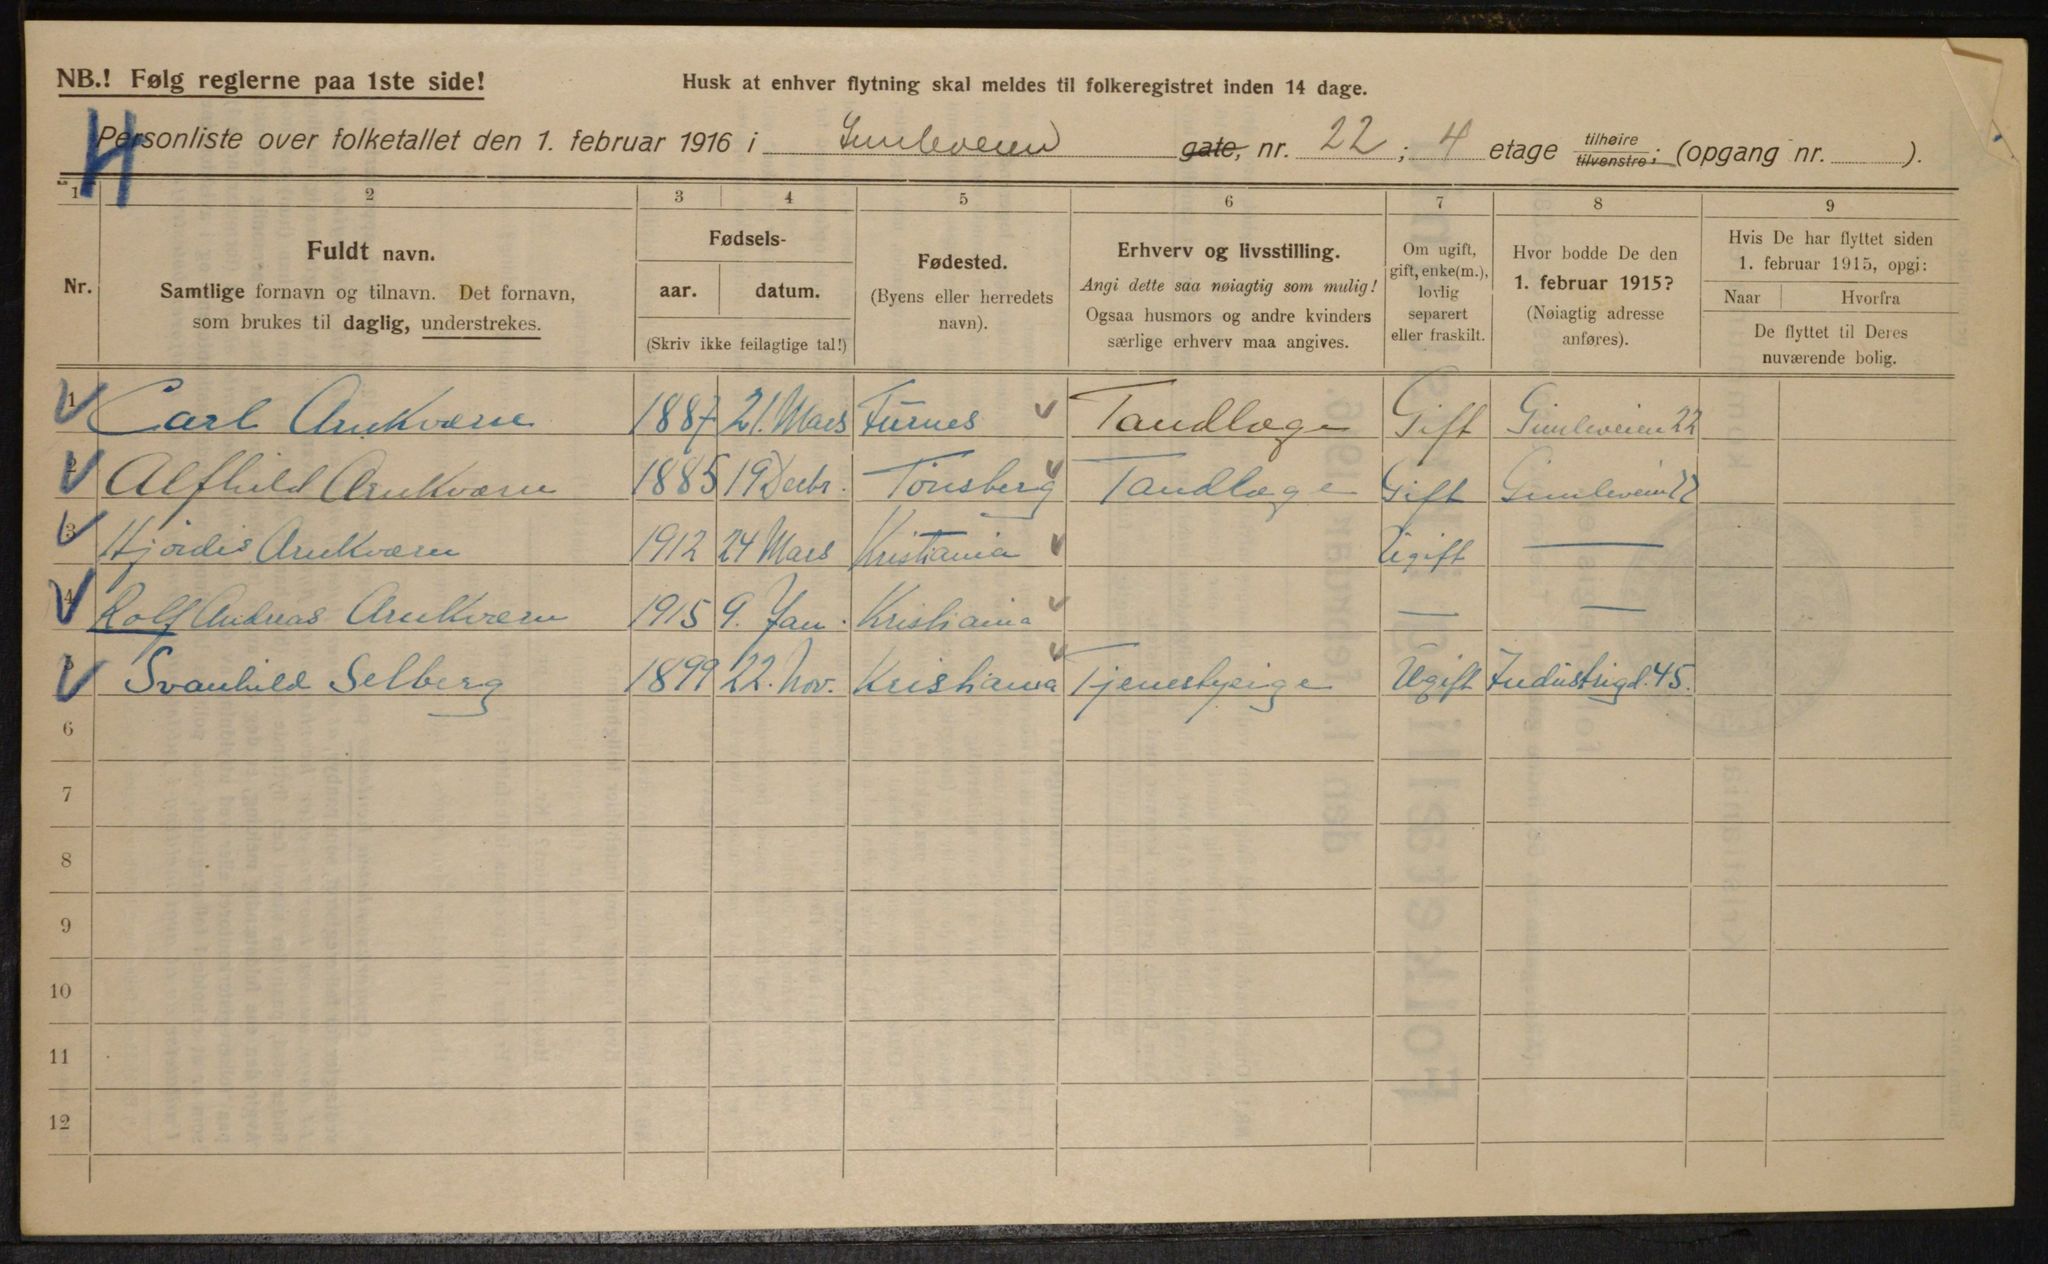 NB.! Følg reglerne paa 1ste side!
Husk at enhver flytning skal meldes til folkeregistret inden 14 dage.
H
Personliste over folketallet den 1. februar 1916 i Gimleveien gate, nr. 22; 4 etage tilhøire tilvenstre; (opgang nr. ).
1 2 3 4 5 6 7 8 9
Nr.
Fuldt navn.
Samtlige fornavn og tilnavn. Det fornavn,
som brukes til daglig, understrekes.
Fødsels-
aar. datum.
(Skriv ikke feilagtige tal!)
Fødested.
(Byens eller herredets
navn).
Erhverv og livsstilling.
Angi dette saa nøiagtig som mulig!
Ogsaa husmors og andre kvinders
særlige erhverv maa angives.
Om ugift,
gift, enke(m.),
lovlig
separert
eller fraskilt.
Hvor bodde De den
1. februar 1915?
(Nøiagtig adresse
anføres).
Hvis De har flyttet siden
1. februar 1915, opgi:
Naar Hvorfra
De flyttet til Deres
nuværende bolig.
1 Carl Arnkværn 1887 21. Mars Furnes Tandlæge Gift Gimleveien 22
2 Alfhild Arnkværn 1885 19 Decbr. Tönsberg Tandlæge Gift Gimleveien 22
3 Hjördis Arnkværn 1912 24 Mars Kristiania Ugift —
4 Rolf Andreas Arnkværn 1915 9. Jan. Kristiania — —
5 Svanhild Selberg 1899 22. Nov. Kristiania Tjenestpige Ugift Industrigd. 45.
6
7
8
9
10
11
12